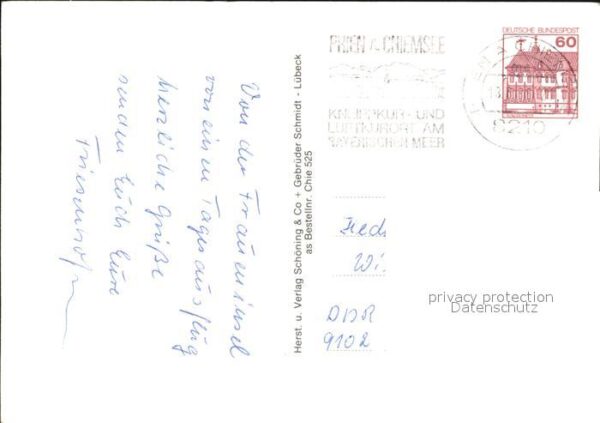 Von der Fraueninsel
von einem Tagesausflug
herzliche Grüße
senden Euch Eure
Herst. u. Verlag Schöning & Co + Gebrüder Schmidt - Lübeck
as Bestellnr. Chie 525
PRIEN A. CHIEMSEE
KNEIPPKUR- UND
LUFTKURORT AM
BAYERISCHEN MEER
8210
DEUTSCHE BUNDESPOST
60
DDR
9102
privacy protection
Datenschutz